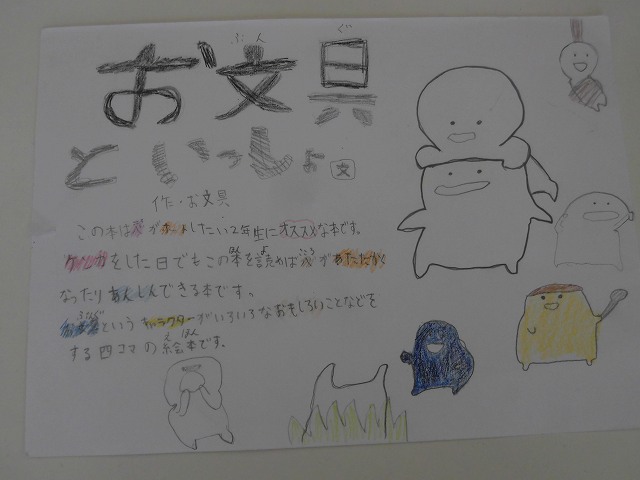 お文具
といっしょ 文
作・お文具
この本は心がホッとしたい2年生にオススメな本です。
ケンカをした日でもこの本を読めば心があたたかく
なったりあんしんできる本です。
お文具というキャラクターがいろいろなおもしろいことなどを
する四コマの絵本です。